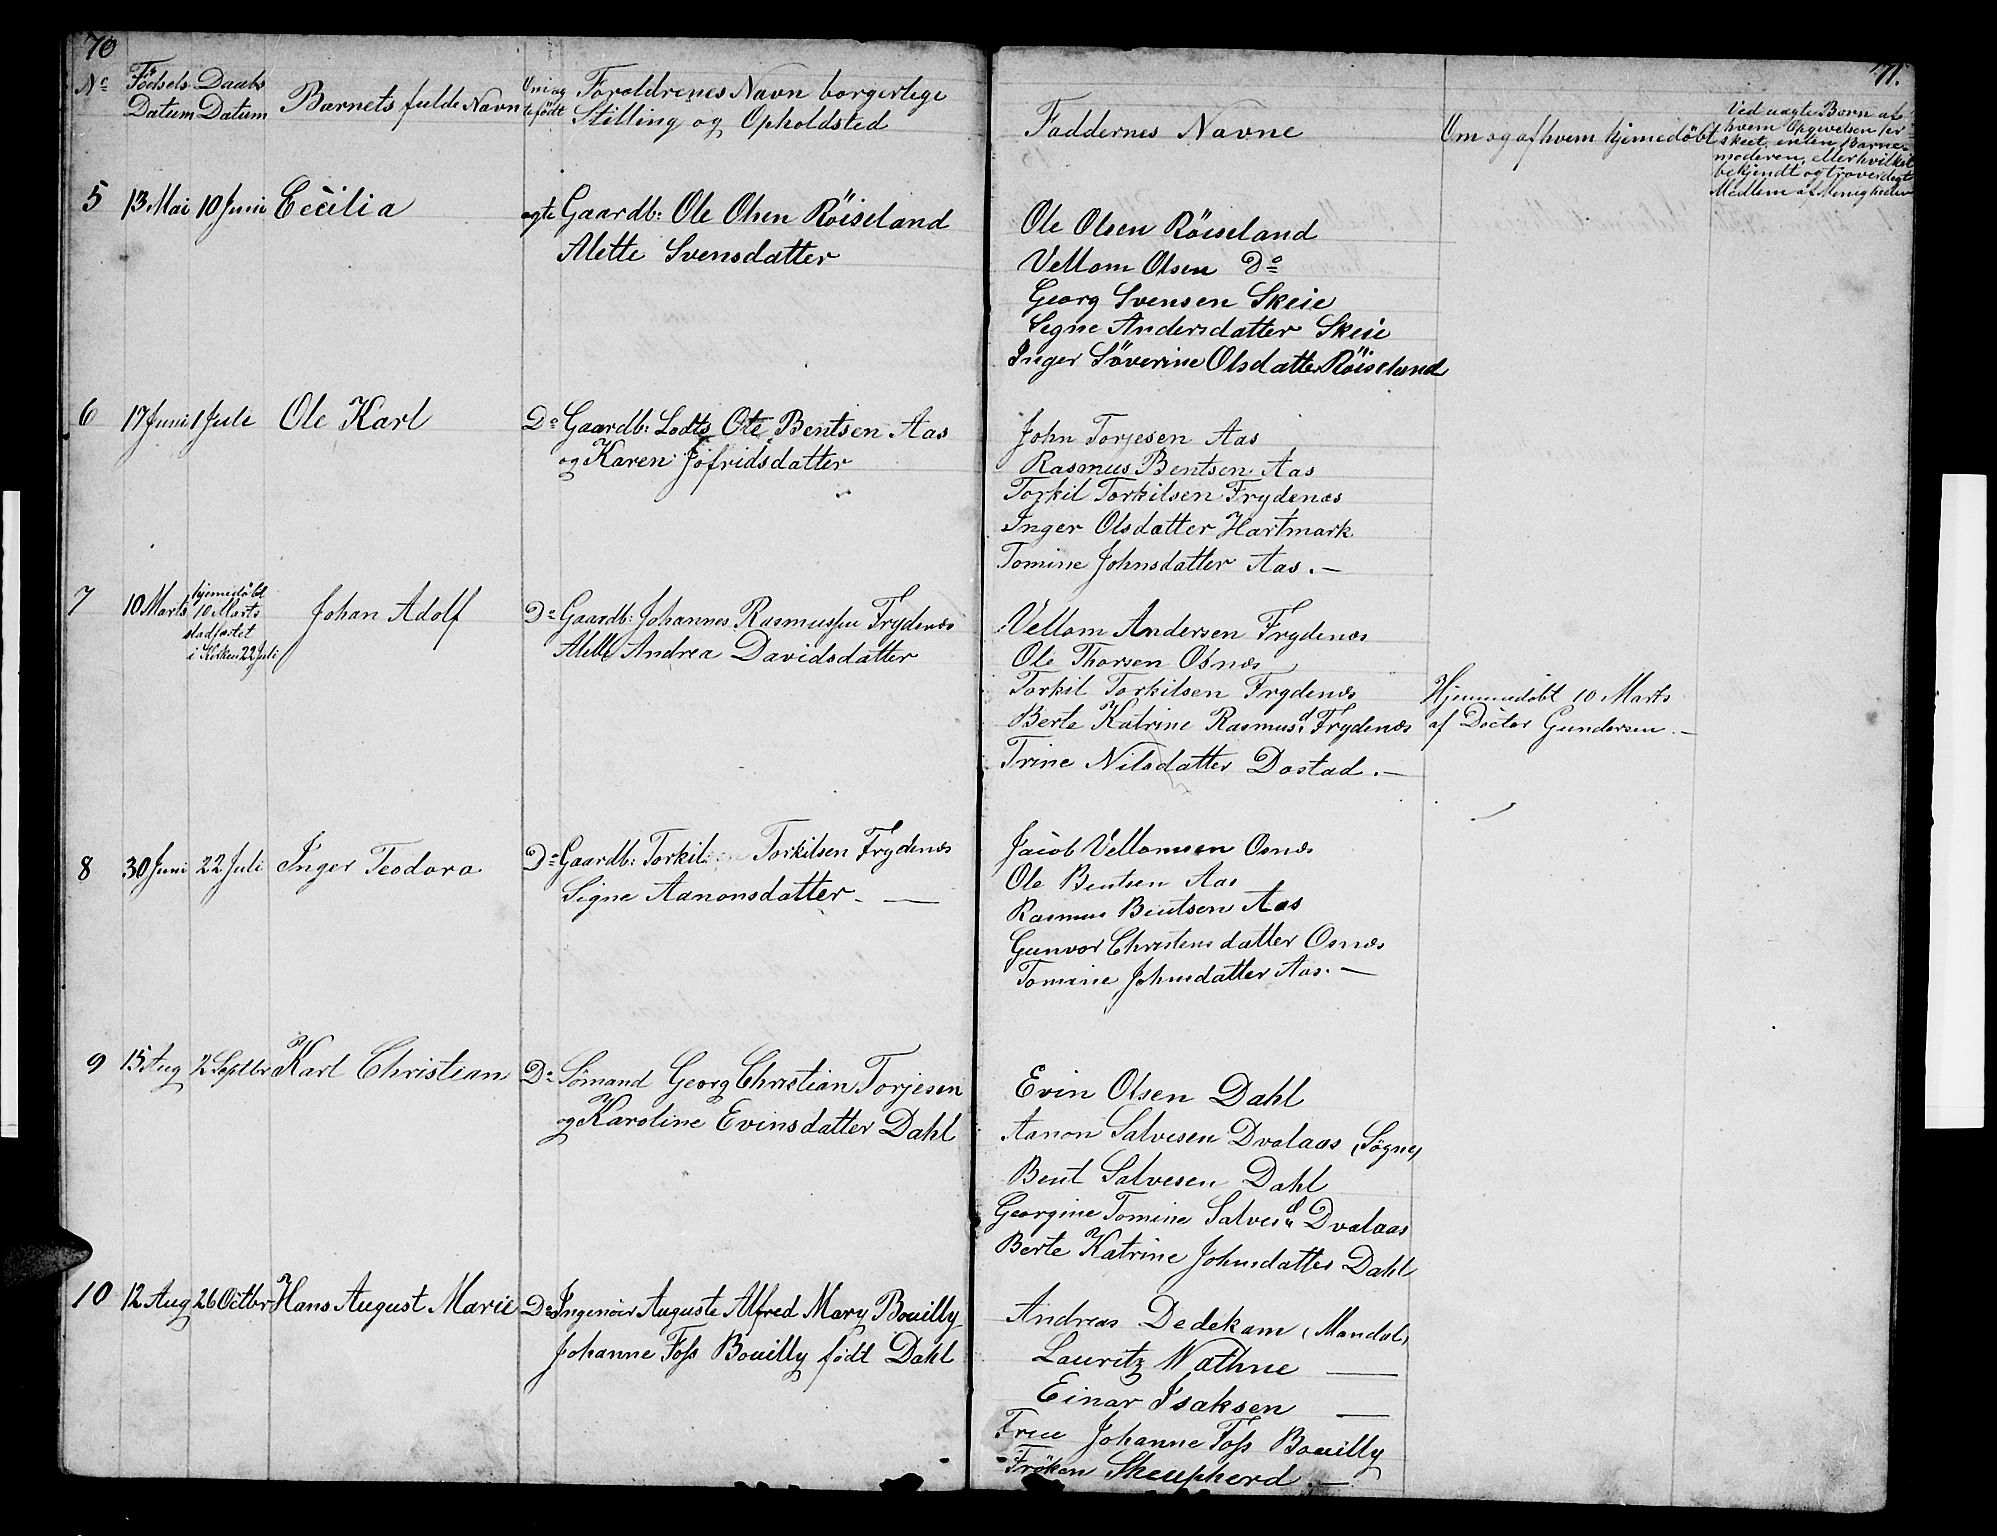 70
71.
No Födsels Datum
Daabs Datum
Barnets fulde Navn
Om ægtefödt
Foroldrenes Navn borgerlige
Stilling og Opholdsted
Faddernes Navne
Om og af hvem hjemedöbt
Ved uægte Born af
hvem Opgivelsen er
skeet, enten Barne-
moderen, eller hvilket
bekjendt og troværdigt
Medlem af Menigheden
5 13 Mai 10 Juni Cecilia ægte Gaardb: Ole Olsen Röiseland
Alette Svensdatter
Ole Olsen Röiseland
Vellom Olsen Do
Georg Svensen Skeie
Segne Andersdatter Skeie
Inger Söverine Olsdatter Röiseland
6 17 Juni 1 Juli Ole Karl Do Gaardb: Lodts Ole Bentsen Aas
og Karen Jofridsdatter
John Torjesen Aas
Rasmus Bentsen Aas
Torkil Torkilsen Frydenæs
Inger Olsdatter Hartmark
Tomine Johnsdatter Aas. —
7 10 Marts hjemedöbt
10 Marts
stadfæstet
i Kirken 22 Juli
Johan Adolf Do Gaardb: Johannes Rasmussen Frydenæs
Alette Andrea Davidsdatter
Vellom Andersen Frydenæs
Ole Thorsen Osnæs
Torkil Torkilsen Frydenæs
Berte Katrine Rasmusd. Frydenæs
Trine Nilsdatter Dostad. —
Hjemmedöbt 10 Marts
af Doctor Gundersen. —
8 30 Juni 22 Juli Inger Teodora Do Gaardb: Torkil Torkilsen Frydenæs
Signe Aanonsdatter. —
Jacob Vellomsen Osnæs
Ole Bentsen Aas
Rasmus Bentsen Aas
Gunvor Christensdatter Osnæs
Tomine Johnsdatter Aas. —
9 15 Aug 2 Septbr Karl Christian Do Sömand Georg Christian Torjesen
og Karoline Evinsdatter Dahl
Evin Olsen Dahl
Aanon Salvesen Dvalaas (Sögne)
Bent Salvesen Dahl
Georgine Tomine Salvesd. Dvalaas
Berte Katrine Johnsdatter Dahl
10 12 Aug 26 Octbr Hans August Marie Do Ingeniör Auguste Alfred Mary Bouilly
Johanne Foss Bouilly födt Dahl
Andreas Dedekam (Mandal)
Lauritz Wathne —
Einar Isaksen —
Frue Johanne Foss Bouilly
Fröken Sheupherd. —